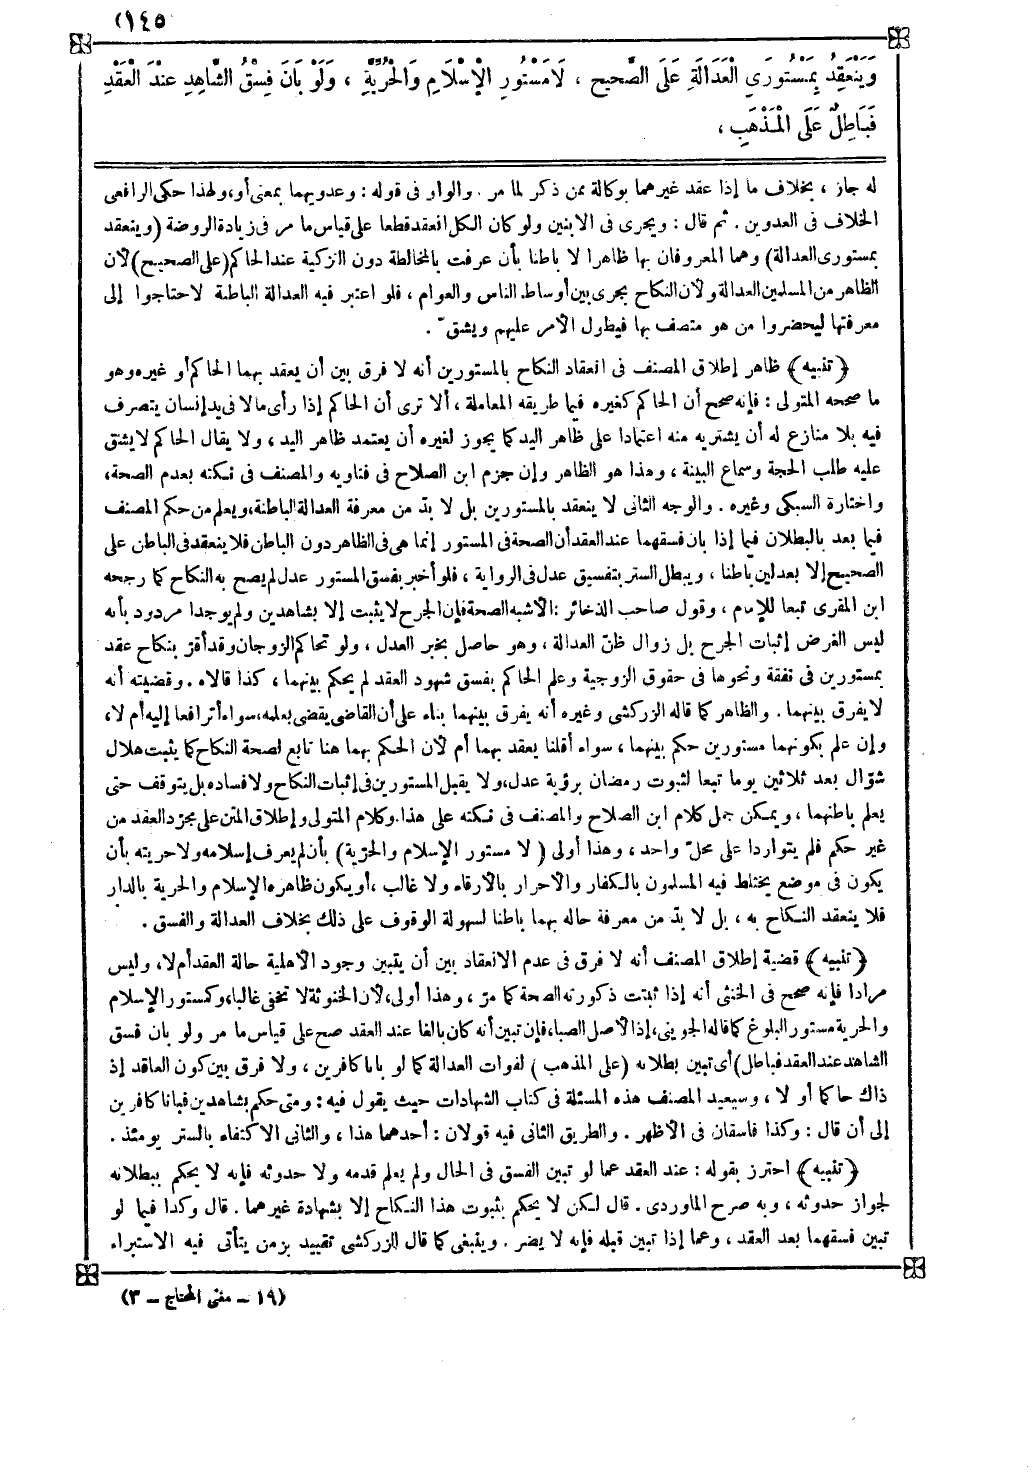 (١٤٥
وَيَنْعَقِدُ بِمَسْتُورَيِ الْعَدَالَةِ عَلَى الصَّحِيحِ ، لَا مَسْتُورِ الْإِسْلَامِ وَالْحُرِّيَّةِ ، وَلَوْ بَانَ فِسْقُ الشَّاهِدِ عِنْدَ الْعَقْدِ
فَبَاطِلٌ عَلَى الْمَذْهَبِ ،
له جاز ، بخلاف ما إذا عقد غيرهما بوكالة ممن ذكر لما مر . والواو فى قوله : وعدويهما بمعنى أو ، ولهذا حكى الرافعى
الخلاف فى العدوين . ثم قال : ويجرى فى الابنين ولو كان الكل انعقد قطعا على قياس ما مر فى زيادة الروضة (وينعقد
بمستورى العدالة) وهما المعروفان بها ظاهرا لا باطنا بأن عرفت بالمخالطة دون التزكية عند الحاكم (على الصحيح) لأن
الظاهر من المسلمين العدالة ولأن النكاح يجرى بين أوساط الناس والعوام ، فلو اعتبر فيه العدالة الباطنة لاحتاجوا إلى
معرفتها ليحضروا من هو متصف بها فيطول الأمر عليهم ويشقّ .
﴿تنبيه﴾ ظاهر إطلاق المصنف فى انعقاد النكاح بالمستورين أنه لا فرق بين أن يعقد بهما الحاكم أو غيره وهو
ما صححه المتولى : فإنه صحح أن الحاكم كغيره فيما طريقه المعاملة ، ألا ترى أن الحاكم إذا رأى مالا فى يد إنسان يتصرف
فيه بلا منازع له أن يشتريه منه اعتمادا على ظاهر اليد كما يجوز لغيره أن يعتمد ظاهر اليد ، ولا يقال الحاكم لا يشق
عليه طلب الحجة وسماع البينة ، وهذا هو الظاهر وإن جزم ابن الصلاح فى فتاويه والمصنف فى نكته بعدم الصحة ،
واختاره السبكى وغيره . والوجه الثانى لا ينعقد بالمستورين بل لا بدّ من معرفة العدالة الباطنة ، ويعلم من حكم المصنف
فيما بعد بالبطلان فيما إذا بان فسقهما عند العقد أن الصحة فى المستور إنما هى فى الظاهر دون الباطن فلا ينعقد فى الباطن على
الصحيح إلا بعدلين باطنا ، ويبطل الستر بتفسيق عدل فى الرواية ، فلو أخبر بفسق المستور عدل لم يصح به النكاح كما رجحه
ابن المقرى تبعا للإمام ، وقول صاحب الذخائر : الأشبه الصحة فإن الجرح لا يثبت إلا بشاهدين ولم يوجدا مردود بأنه
ليس الغرض إثبات الجرح بل زوال ظنّ العدالة ، وهو حاصل بخبر العدل ، ولو تحاكم الزوجان وقد أقرّ بنكاح عقد
بمستورين فى نفقة ونحوها فى حقوق الزوجية وعلم الحاكم بفسق شهود العقد لم يحكم بينهما ، كذا قالاه . وقضيته أنه
لا يفرق بينهما . والظاهر كما قاله الزركشى وغيره أنه يفرق بينهما بناء على أن القاضى يقضى بعلمه ، سواء أترافعا إليه أم لا ،
وإن علم بكونهما مستورين حكم بينهما ، سواء أقلنا يعقد بهما أم لأن الحكم بهما هنا تابع لصحة النكاح كما يثبت هلال
شوّال بعد ثلاثين يوما تبعا لثبوت رمضان برؤية عدل ، ولا يقبل المستورين فى إثبات النكاح ولا فساده بل يتوقف حتى
يعلم باطنهما ، ويمكن حمل كلام ابن الصلاح والمصنف فى نكته على هذا . وكلام المتولى وإطلاق المتن على مجرّد العقد من
غير حكم فلم يتواردا على محلّ واحد ، وهذا أولى ( لا مستور الإسلام والحرّية) بأن لم يعرف إسلامه ولا حريته بأن
يكون فى موضع يختلط فيه المسلمون بالكفار والأحرار بالأرقاء ولا غالب ، أو يكون ظاهره الإسلام والحرية بالدار
فلا ينعقد النكاح به ، بل لا بدّ من معرفة حاله بهما باطنا لسهولة الوقوف على ذلك بخلاف العدالة والفسق .
﴿تنبيه﴾ قضية إطلاق المصنف أنه لا فرق فى عدم الانعقاد بين أن يتبين وجود الأهلية حالة العقد أم لا ، وليس
مرادا فإنه صحح فى الخنثى أنه إذا ثبتت ذكورته الصحة كما مرّ ، وهذا أولى ، لأن الخنوثة لا تخفى غالبا ، وكمستور الإسلام
والحرية مستور البلوغ كما قاله الجوينى ، إذ الأصل الصبا ، فإن تبين أنه كان بالغا عند العقد صح على قياس ما مر ولو بان فسق
الشاهد عند العقد فباطل) أى تبين بطلانه (على المذهب ) لفوات العدالة كما لو بانا كافرين ، ولا فرق بين كون العاقد إذ
ذاك حاكما أو لا ، وسيعيد المصنف هذه المسئلة فى كتاب الشهادات حيث يقول فيه : ومتى حكم بشاهدين فبانا كافرين
إلى أن قال : وكذا فاسقان فى الأظهر . والطريق الثانى فيه قولان : أحدهما هذا ، والثانى الاكتفاء بالستر يومئذ .
﴿تنبيه﴾ احترز بقوله : عند العقد عما لو تبين الفسق فى الحال ولم يعلم قدمه ولا حدوثه فإنه لا يحكم ببطلانه
لجواز حدوثه ، وبه صرح الماوردى . قال لكن لا يحكم بثبوت هذا النكاح إلا بشهادة غيرهما . قال وكذا فيما لو
تبين فسقهما بعد العقد ، وعما إذا تبين قبله فإنه لا يضر . وينبغى كما قال الزركشى تقييد بزمن يتأتى فيه الاستبراء
(١٩ – مغنى المحتاج – ٣)